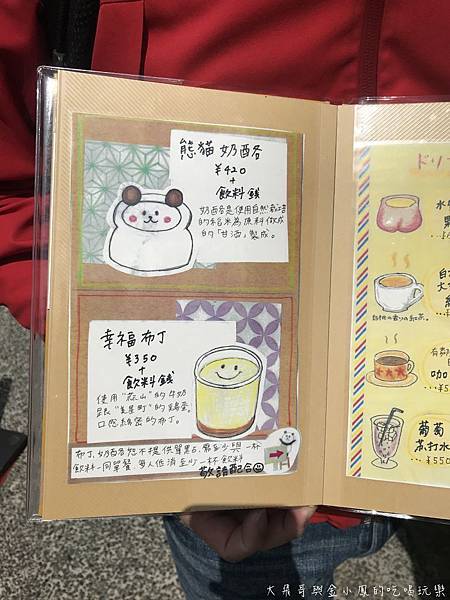 熊貓 奶酪
¥420
+
飲料錢
奶酪是使用自然栽培
的稻米為原料做成
的「甘酒」製成。
幸福布丁
¥350
+
飲料錢
使用"蒜山"的牛奶
跟"美星町"的雞蛋。
口感綿密的布丁。
布丁、奶酪恕不提供單點,最少與一杯
飲料一同單餐 每人低消至少一杯飲料
敬請配合
ドリ
水
白桃の香りの紅茶。
咖
葡萄
蘇打水
¥550
大飛哥與金小鳳的吃喝玩樂